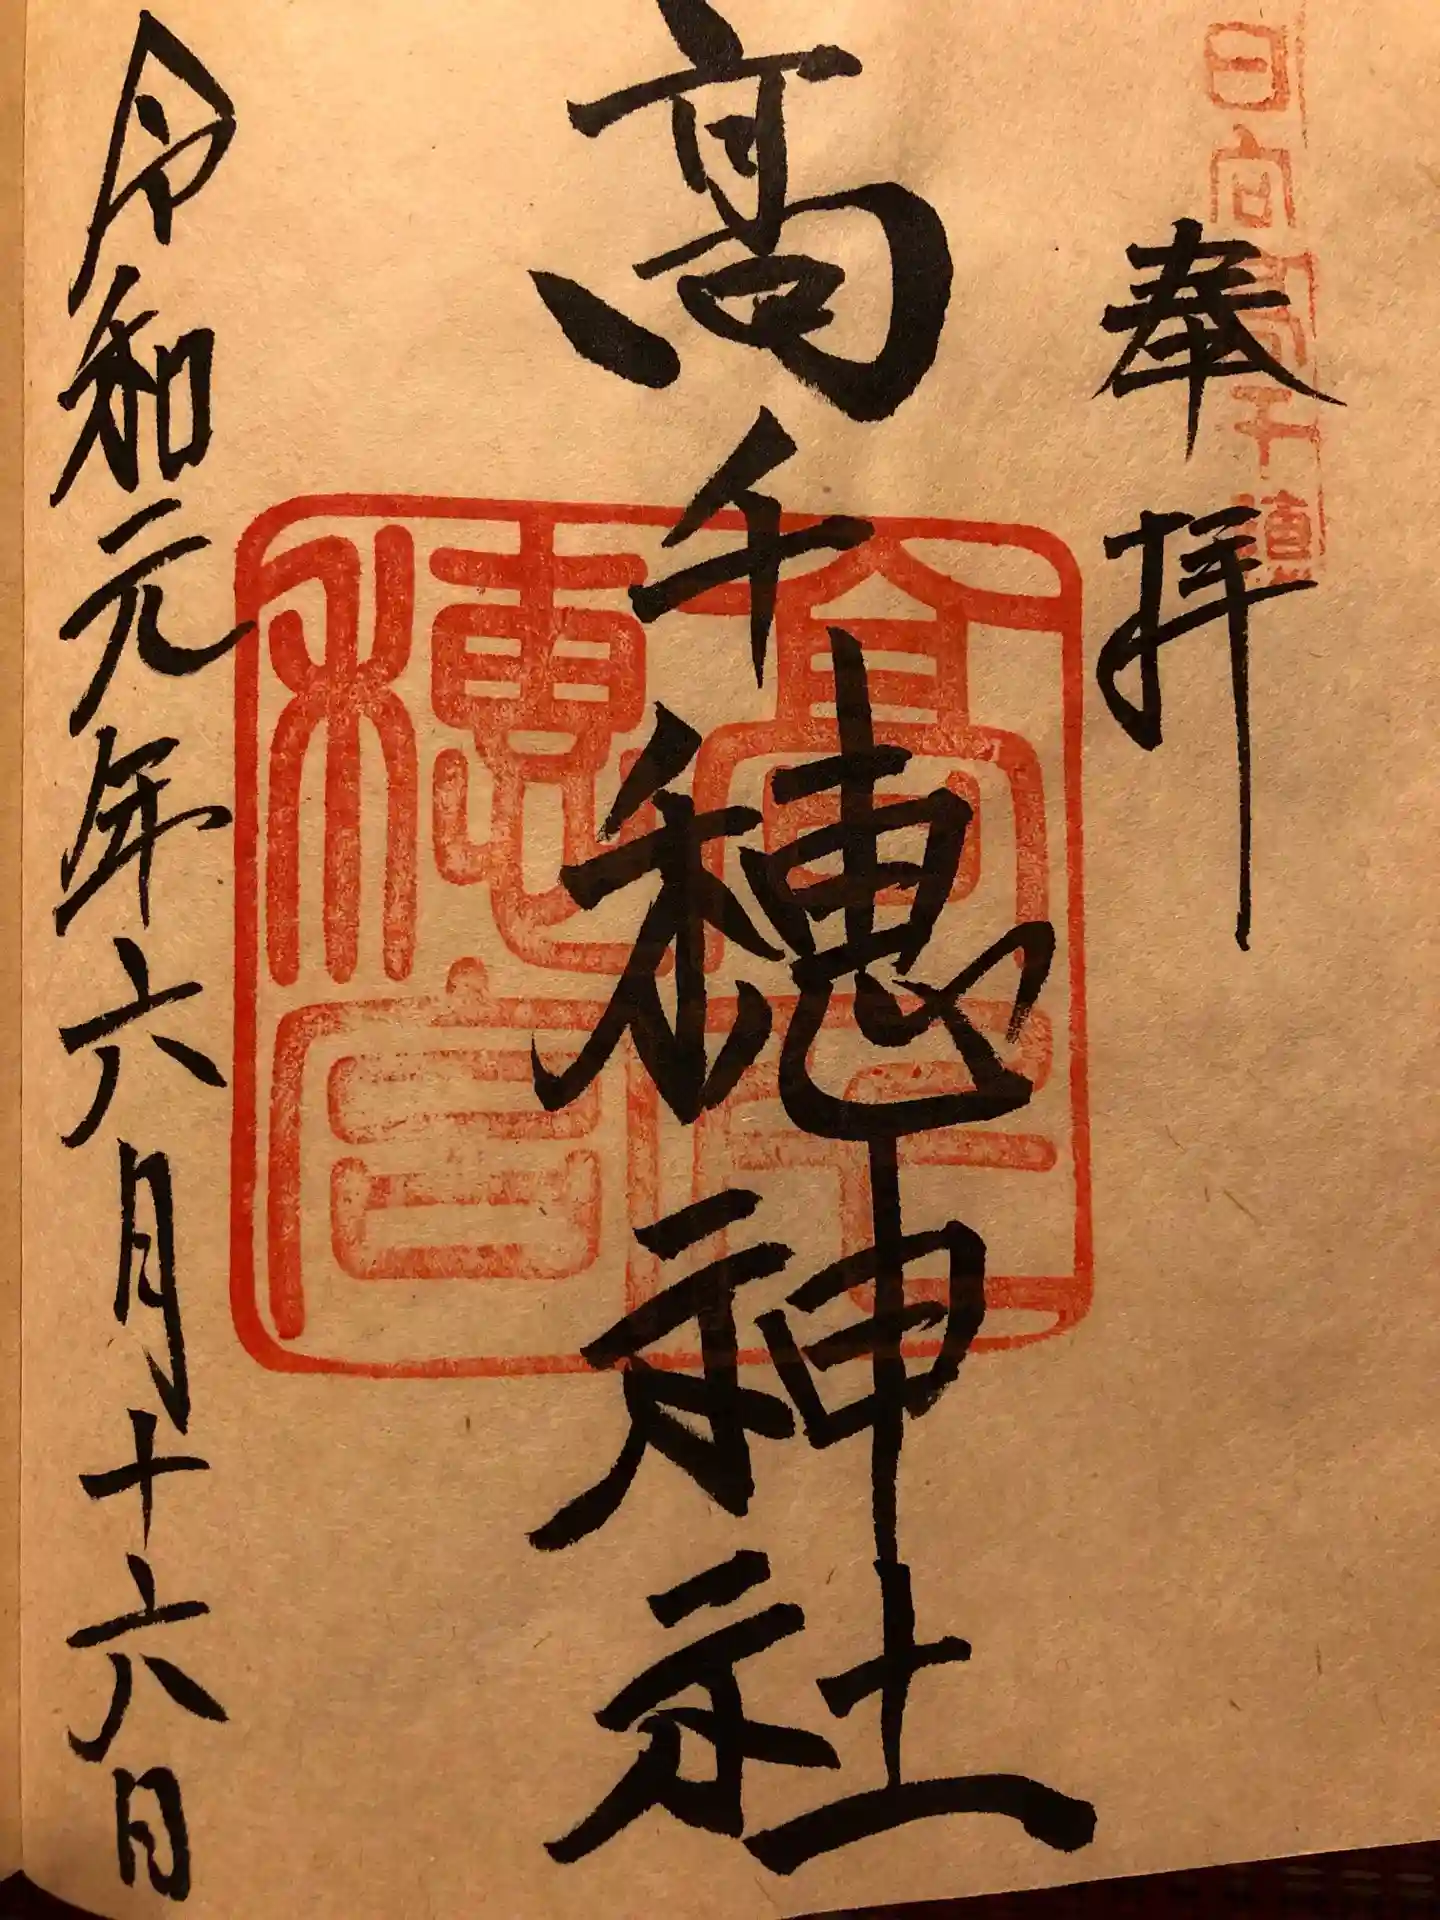 日向高千穂
奉拝
高千穂神社
高千穂宮
令和元年六月十六日